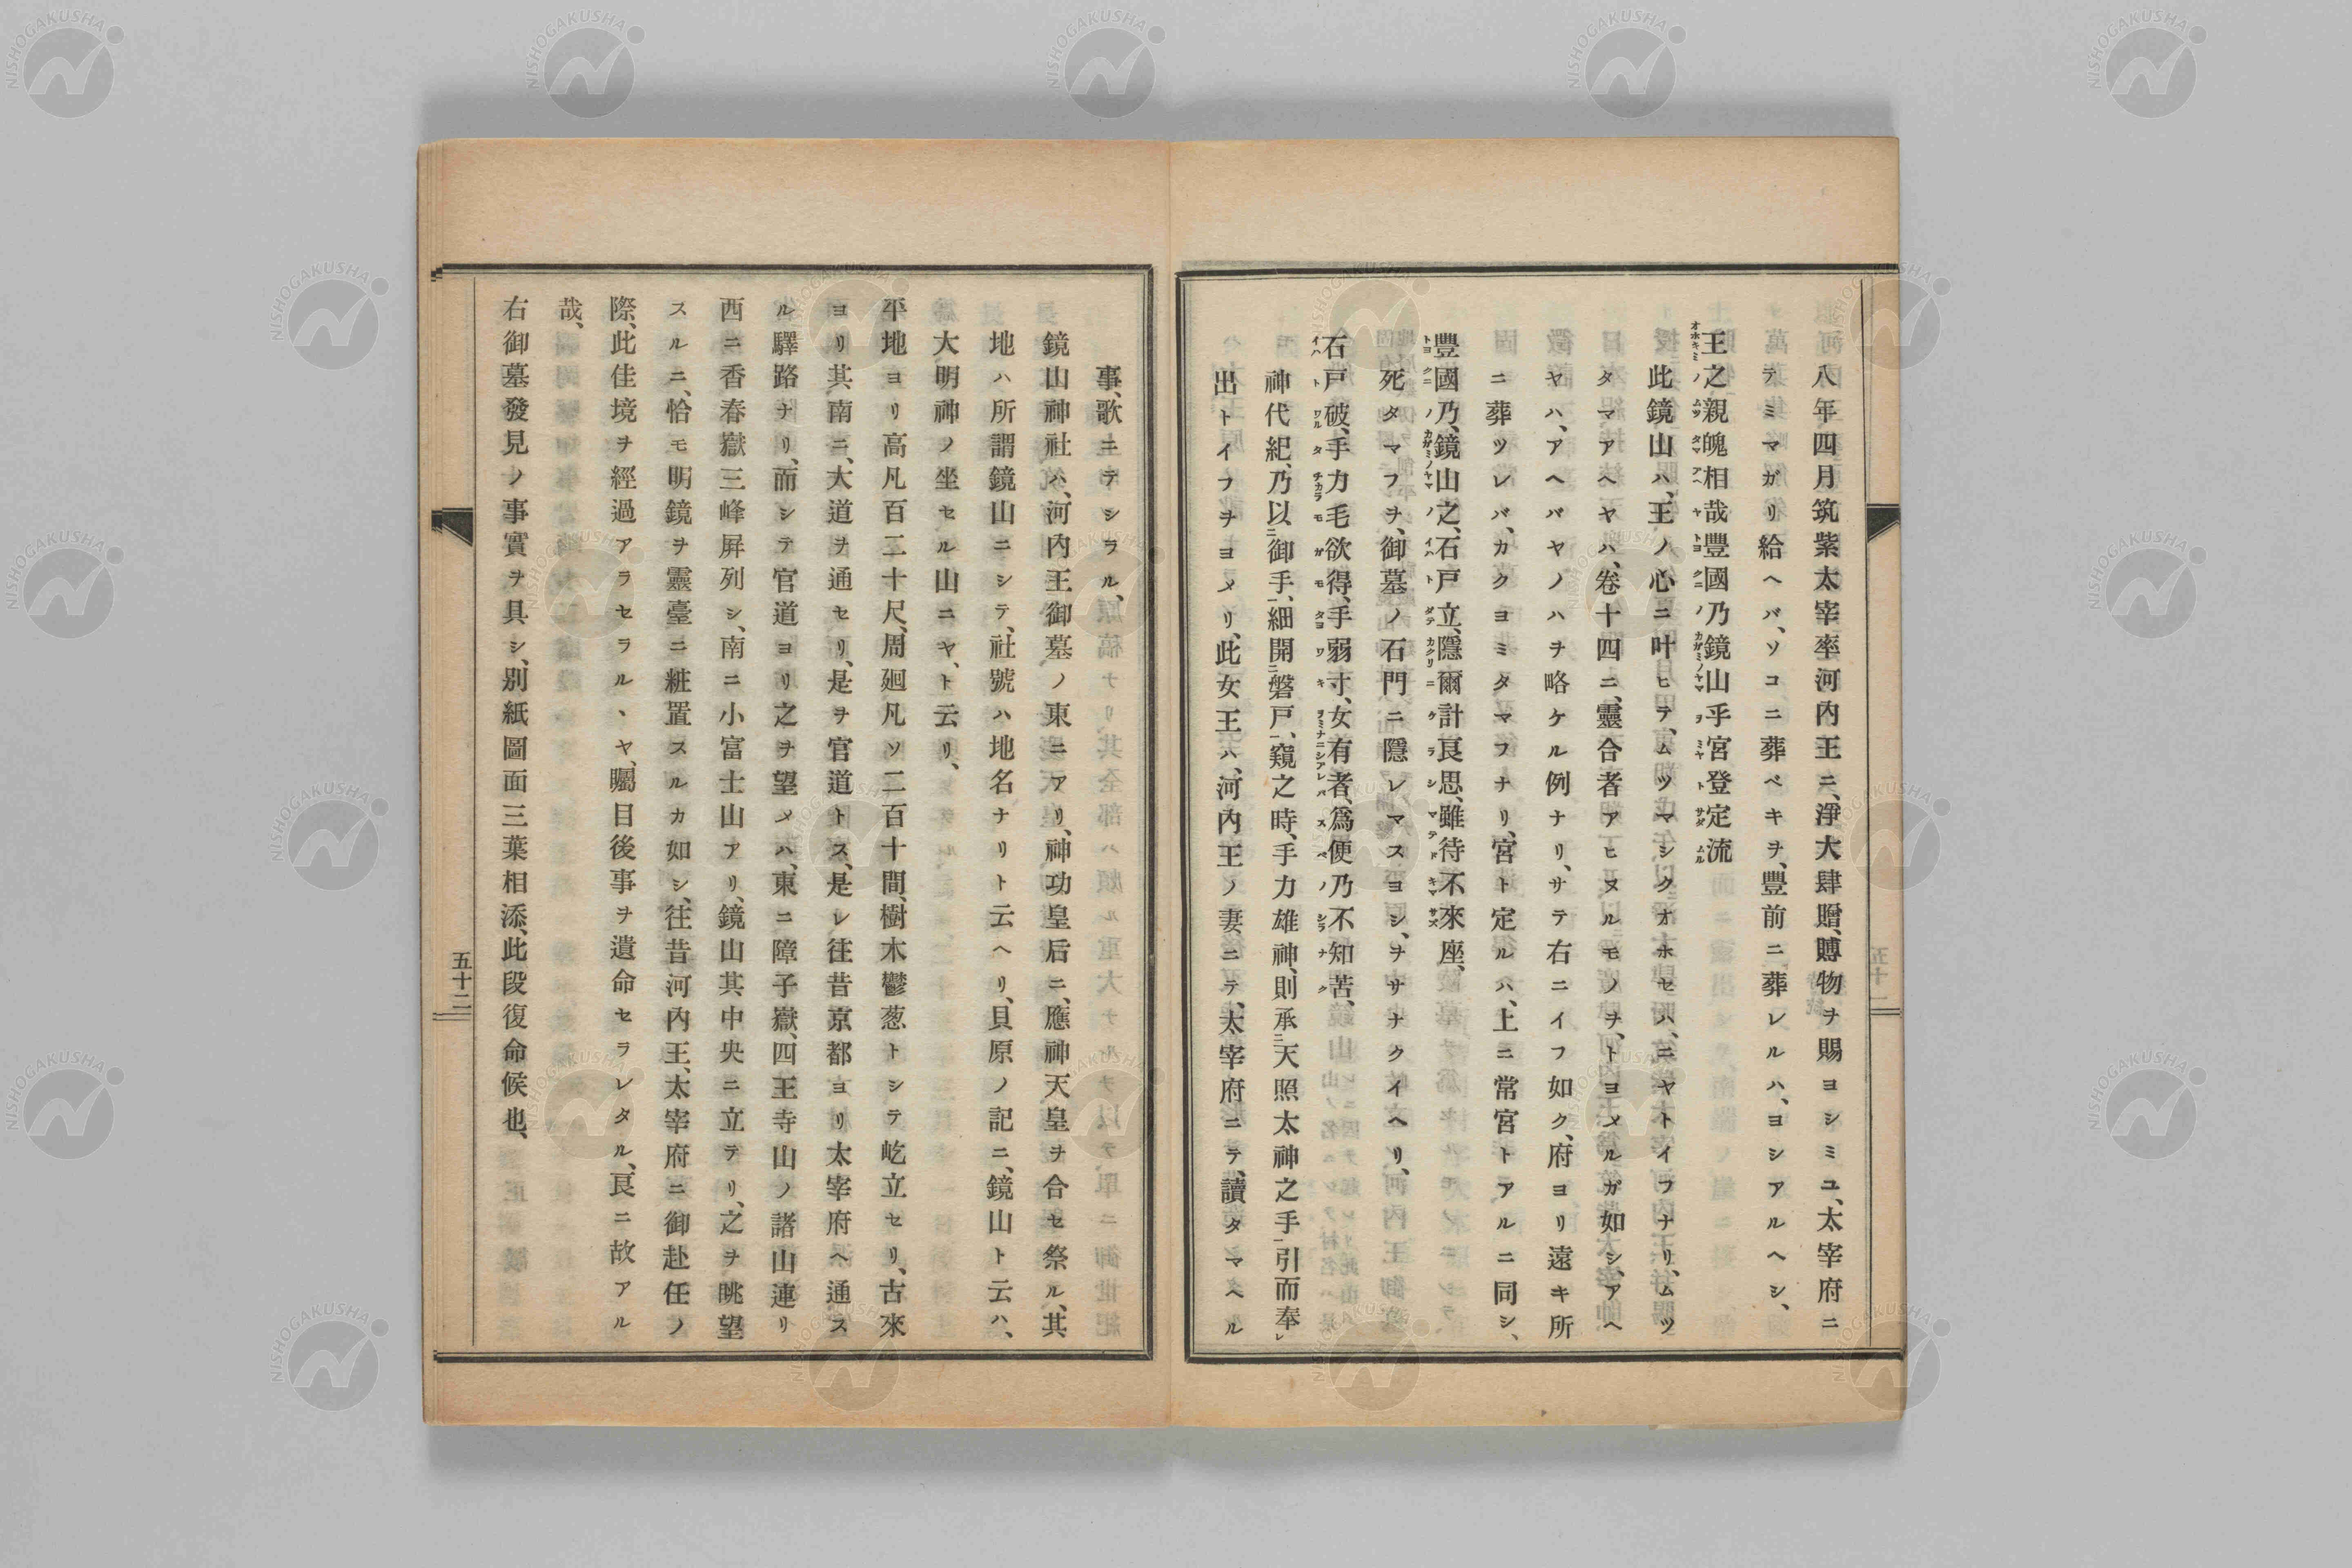 八年四月筑紫太宰率河內王ニ、淨大肆贈、賻物ヲ賜ヨシミユ、太宰府ニ
テミマガリ給ヘバ、ソコニ葬ベキヲ、豐前ニ葬レルハ、ヨシアルヘシ、
王之親魄相哉豐國乃鏡山乎宮登定流
此鏡山ハ、王ノ心ニ叶ヒテ、ムツマシクオホセハ、ニヤトイフナリ、ムツ
タマアヘヤハ、卷十四ニ、靈合者アヒヌルモノヲ、トヨメルガ如シ、アヘ
ヤハ、アヘバヤノハヲ略ケル例ナリ、サテ右ニイフ如ク、府ヨリ遠キ所
ニ葬ツレバ、カクヨミタマフナリ、宮ト定ルハ、上ニ常宮トアルニ同シ、
豐國乃、鏡山之、石戸立、隱爾計良思、雖待不來座、
死タマフヲ、御墓ノ石門ニ隱レマスヨシ、ヲサナクイヘリ、
石戸破、手力毛欲得、手弱寸、女有者、爲便乃不知苦、
神代紀、乃以二御手一、細開二磐戸一、窺之時、手力雄神、則承二天照太神之手一引而奉レ
出トイフヲヨメリ、此女王ハ、河內王ノ妻ニテ、太宰府ニテ、讀タマヘル
事、歌ニテシラル、
鏡山神社ハ、河內王御墓ノ東ニアリ、神功皇后ニ、應神天皇ヲ合セ祭ル、其
地ハ所謂鏡山ニシテ、社號ハ地名ナリト云ヘリ、貝原ノ記ニ、鏡山ト云ハ、
大明神ノ坐セル山ニヤ、ト云リ、
平地ヨリ高凡百二十尺、周廻凡ソ二百十間、樹木鬱葱トシテ屹立セリ、古來
ヨリ其南ニ、大道ヲ通セリ、是ヲ官道トス、是レ往昔京都ヨリ太宰府ヘ通ス
ル驛路ナリ、而シテ官道ヨリ之ヲ望メハ、東ニ障子嶽、四王寺山ノ諸山連リ
西ニ香春嶽三峰屏列シ、南ニ小富士山アリ、鏡山其中央ニ立テリ、之ヲ眺望
スルニ、恰モ明鏡ヲ靈臺ニ粧置スルカ如シ、往昔河內王、太宰府ニ御赴任ノ
際、此佳境ヲ經過アラセラル、ヤ、矚目後事ヲ遺命セラレタル、良ニ故アル
哉、
右御墓發見ノ事實ヲ具シ、別紙圖面三葉相添、此段復命候也、
五十二
NISHOGAKUSHA